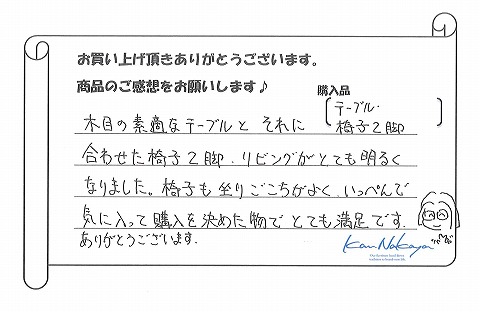 お買い上げ頂きありがとうございます。
商品のご感想をお願いします♪
購入品
テーブル・
椅子2脚
木目の素適なテーブルと それに
合わせた椅子2脚.リビングがとても明るく
なりました。椅子も坐りごこちがよく、いっぺんで
気に入って購入を決めた物で とても満足です.
ありがとうございます.
Kan Nakaya